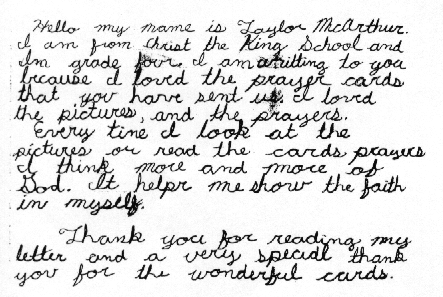 Hello my mame is Taylor McArthur.
I am from Christ the King School and
I'm grade four. I am writting to you
because I loved the prayer cards
that you have sent us. I lovd
the pictures, and the prayers.
Every tine I look at the
pictures or read the cards prayers
I think more and more of
God. It helpr me show the faith
in myself.
Thank you for reading my
letter and a very special thank
you for the wonderful cards.